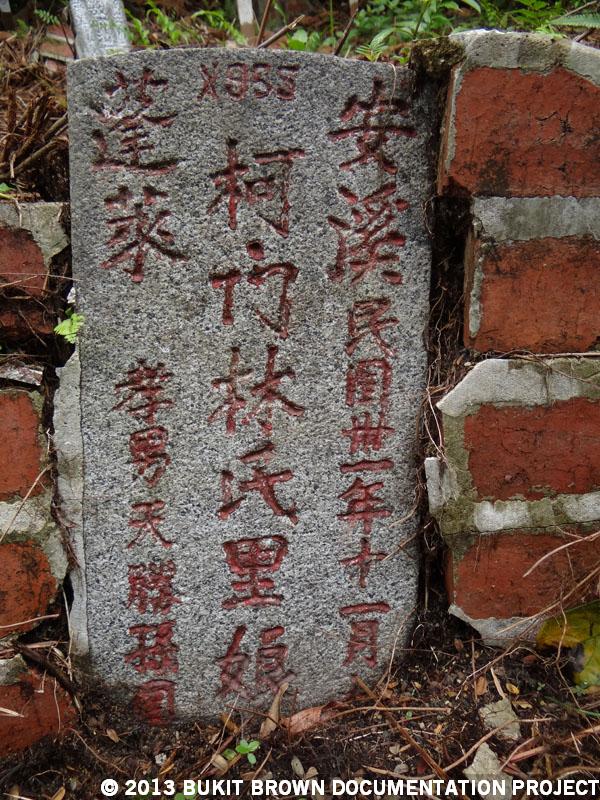 安溪 民國卅一年十一月
柯门林氏里娘
蓬萊 孝男天勝孫
© 2013 BUKIT BROWN DOCUMENTATION PROJECT